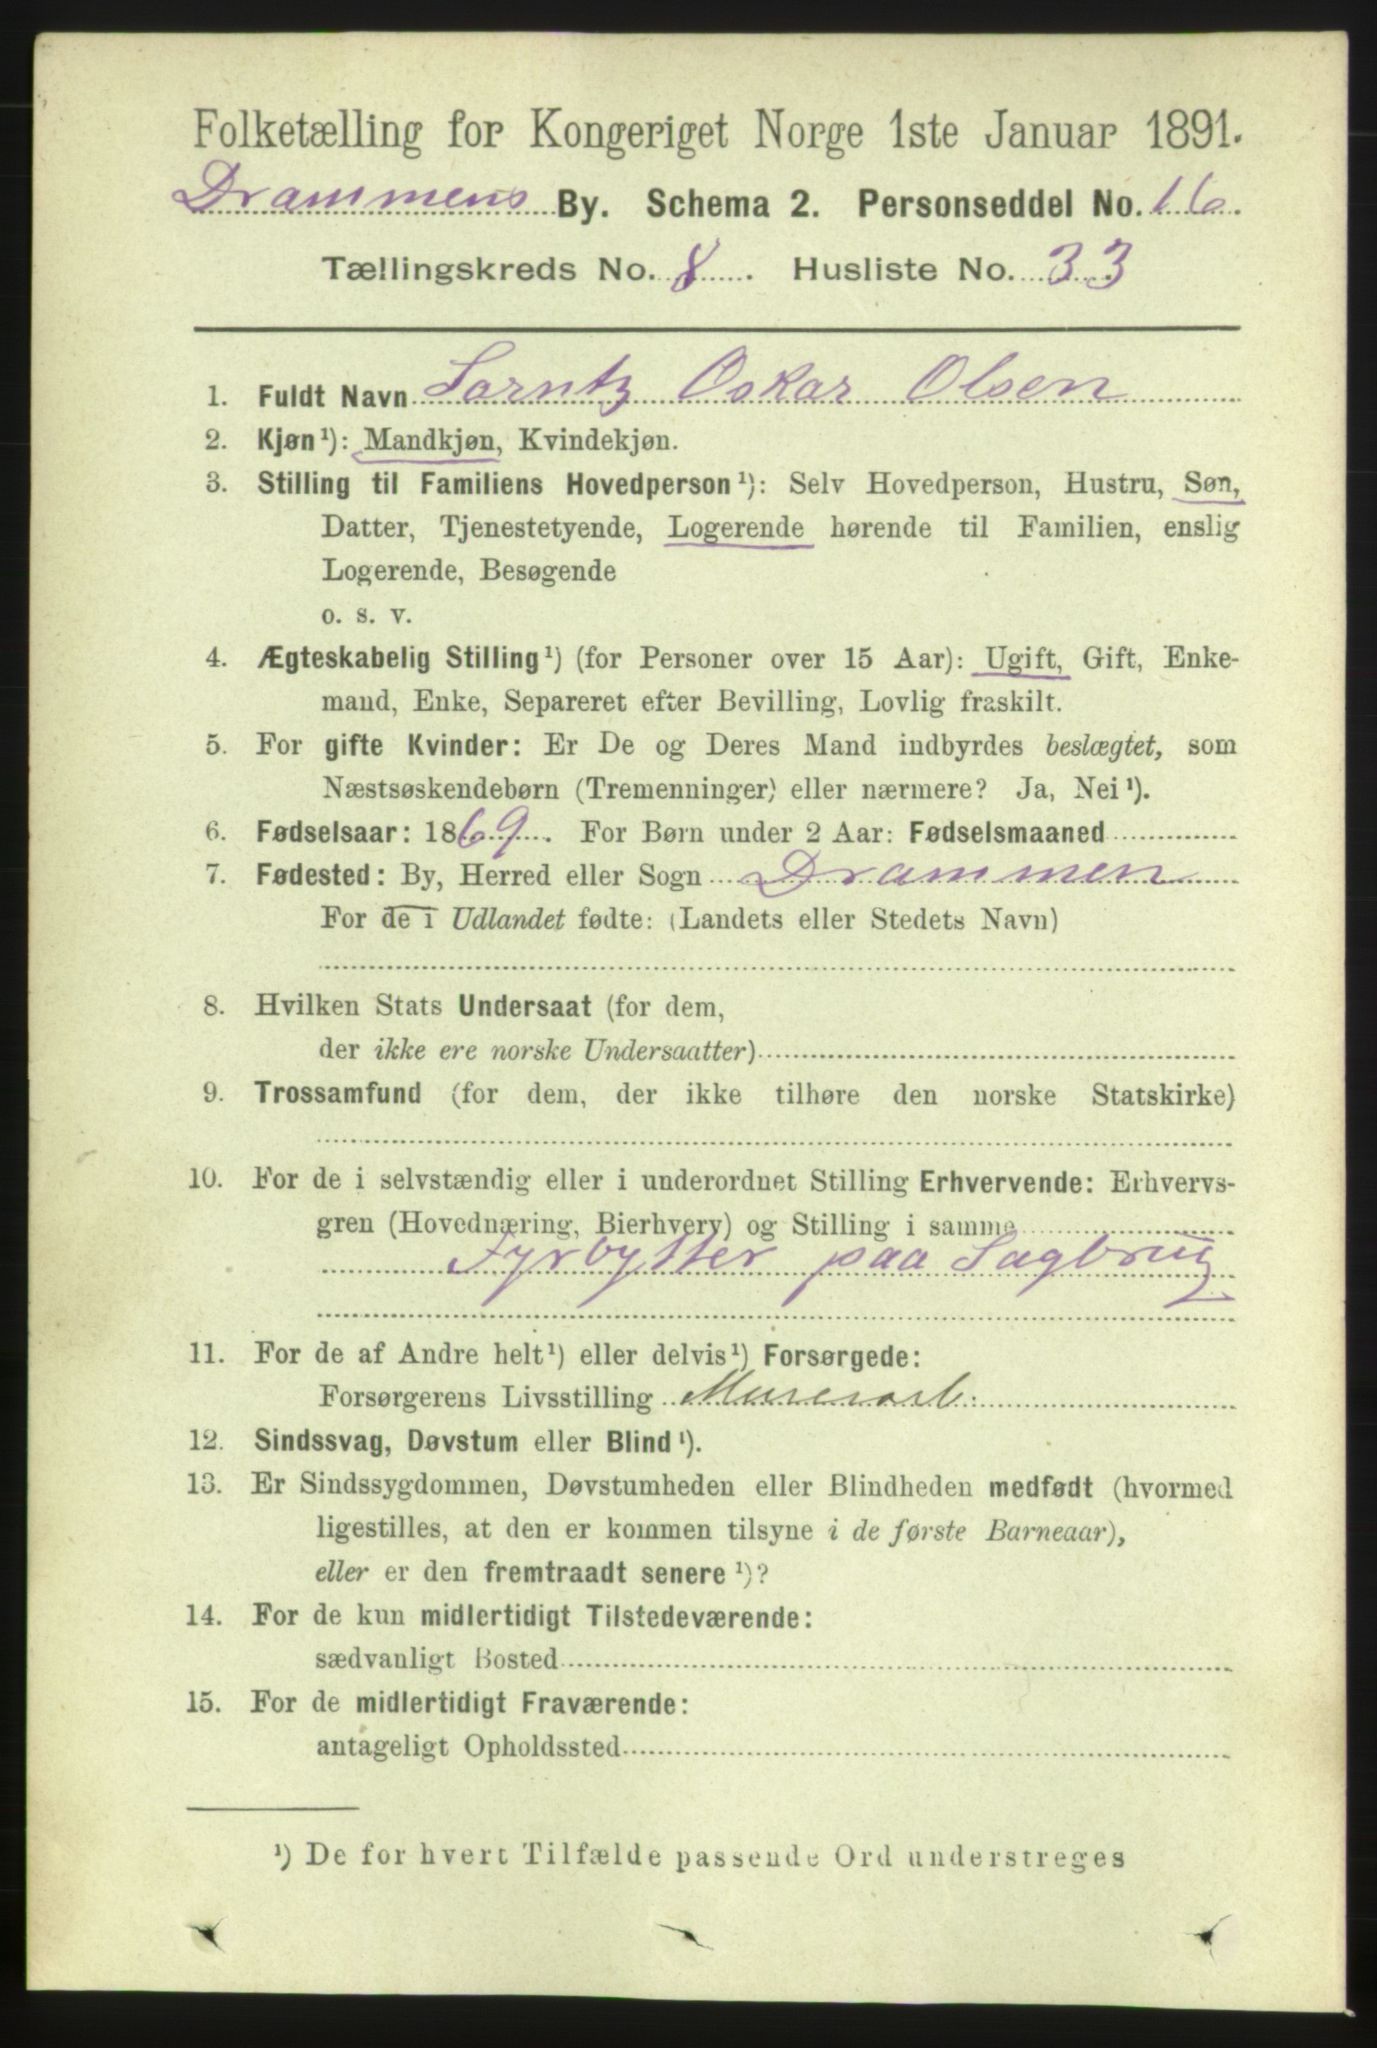 Folketælling for Kongeriget Norge 1ste Januar 1891.
Drammens By. Schema 2. Personseddel No. 16.
Tællingskreds No. 8. Husliste No. 33
1. Fuldt Navn Lorntz Oskar Olsen
2. Kjøn¹): Mandkjøn, Kvindekjøn.
3. Stilling til Familiens Hovedperson¹): Selv Hovedperson, Hustru, Søn,
Datter, Tjenestetyende, Logerende hørende til Familien, enslig
Logerende, Besøgende
o. s. v.
4. Ægteskabelig Stilling¹) (for Personer over 15 Aar): Ugift, Gift, Enke-
mand, Enke, Separeret efter Bevilling, Lovlig fraskilt.
5. For gifte Kvinder: Er De og Deres Mand indbyrdes beslægtet, som
Næstsøskendebørn (Tremenninger) eller nærmere? Ja, Nei¹).
6. Fødselsaar: 1869. For Børn under 2 Aar: Fødselsmaaned
7. Fødested: By, Herred eller Sogn Drammen
For de i Udlandet fødte: (Landets eller Stedets Navn)
8. Hvilken Stats Undersaat (for dem,
der ikke ere norske Undersaatter)
9. Trossamfund (for dem, der ikke tilhøre den norske Statskirke)
10. For de i selvstændig eller i underordnet Stilling Erhvervende: Erhvervs-
gren (Hovednæring, Bierhverv) og Stilling i samme
Fyrbytter paa Sagbrug
11. For de af Andre helt¹) eller delvis¹) Forsørgede:
Forsørgerens Livsstilling Murerarb.
12. Sindssvag, Døvstum eller Blind¹).
13. Er Sindssygdommen, Døvstumheden eller Blindheden medfødt (hvormed
ligestilles, at den er kommen tilsyne i de første Barneaar),
eller er den fremtraadt senere¹)?
14. For de kun midlertidigt Tilstedeværende:
sædvanligt Bosted
15. For de midlertidigt Fraværende:
antageligt Opholdssted
¹) De for hvert Tilfælde passende Ord understreges